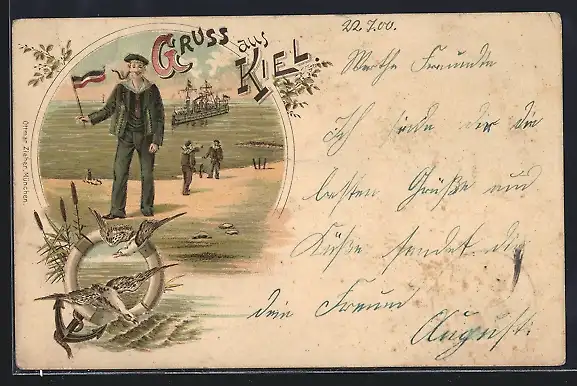 GRUSS aus KIEL.
22.7.00.
Werthe Freundin
Ich sende dir die
besten Grüße und
Küße sendet dir
dein Freund
August.
Ottmar Zieher, München.